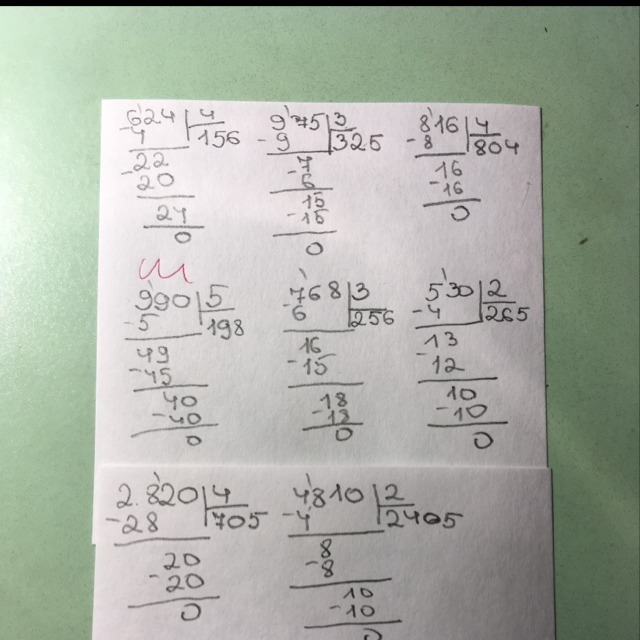 624 4 975 3 816 4
-4 156 -9 325 -8 804
22 7 16
-20 -6 -16
24 15 0
0 -15
0
990 5 768 3 530 2
-5 198 -6 256 -4 265
49 16 13
-45 -15 -12
40 18 10
-40 -18 -10
0 0 0
2.820 4 4810 2
-28 705 -4 2405
20 8
-20 -8
0 10
-10
0